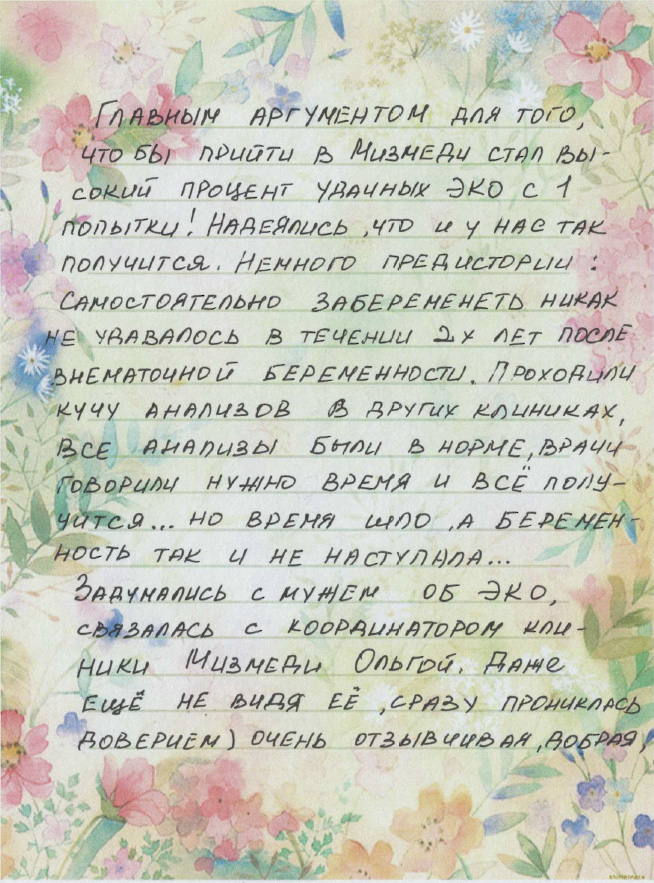 Главным аргументом для того,
что бы прийти в Мизмеди стал вы-
сокий процент удачных ЭКО с 1
попытки! Надеялись, что и у нас так
получится. Немного предистории:
Самостоятельно забеременеть никак
не удавалось в течении 2х лет после
внематочной беременности. Проходили
кучу анализов в других клиниках,
все анализы были в норме, врачи
говорили нужно время и всё полу-
чится... но время шло, а беремен-
ность так и не наступала...
Задумались с мужем об ЭКО,
связалась с координатором кли-
ники Мизмеди Ольгой. Даже
ещё не видя её, сразу прониклась
доверием) очень отзывчивая, добрая,